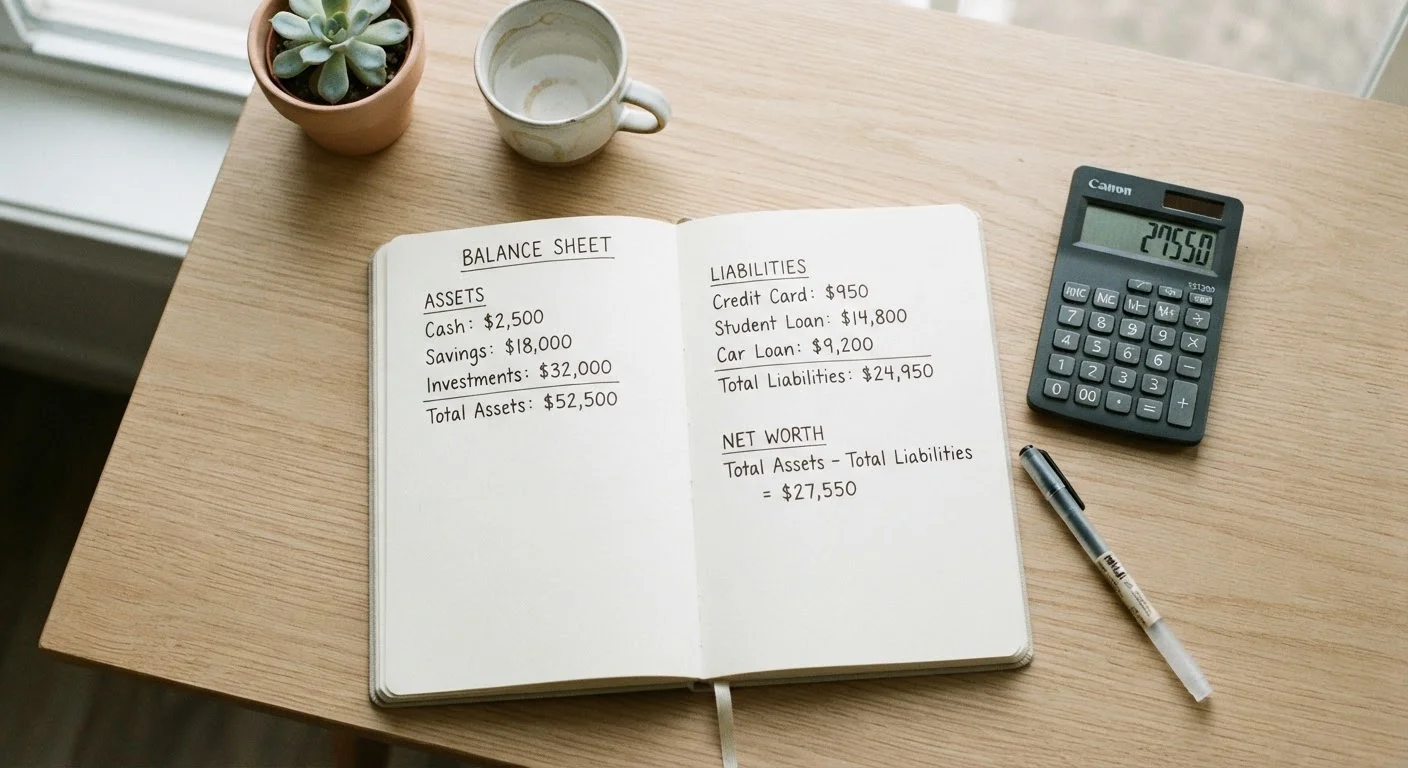 BALANCE SHEET
ASSETS
Cash: $2,500
Savings: $18,000
Investments: $32,000
Total Assets: $52,500
LIABILITIES
Credit Card: $950
Student Loan: $14,800
Car Loan: $9,200
Total Liabilities: $24,950
NET WORTH
Total Assets – Total Liabilities
= $27,550
Canon
27550
MC
7 8 9 ÷
4 5 6 6 ×
1 2 3 3 −
0 00 · = +